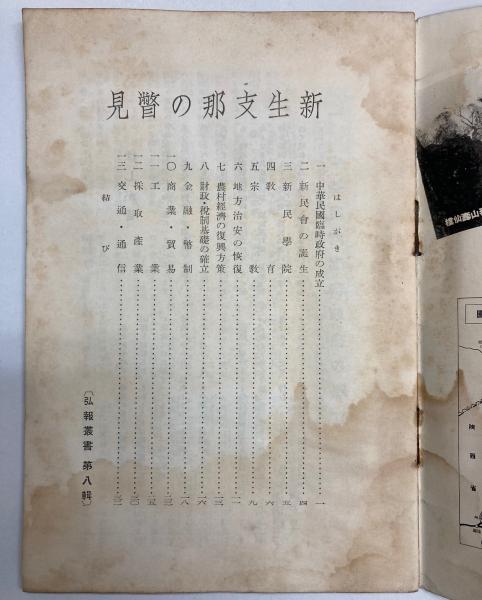 新生支那の瞥見
はしがき
一 中華民國臨時政府の成立 一
二 新民會の誕生 四
三 新民學院 五
四 敎育 六
五 宗敎 九
六 地方治安の恢復 一一
七 農村經濟の復興方策 一三
八 財政・稅制基礎の確立 一六
九 金融・幣制 一八
一〇 商業・貿易
一一 工業
一二 採取產業
一三 交通・通信
結び
〔弘報叢書 第八輯〕
陝西省